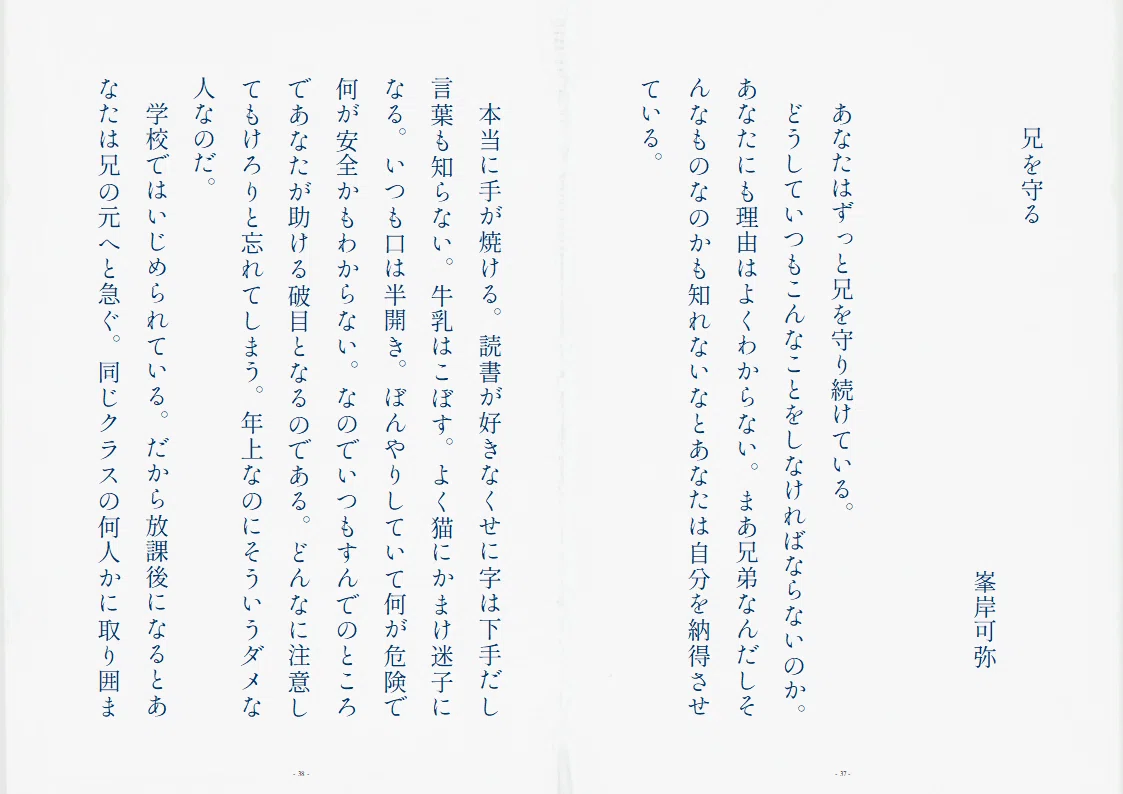 兄を守る
峯岸可弥
あなたはずっと兄を守り続けている。
どうしていつもこんなことをしなければならないのか。
あなたにも理由はよくわからない。まあ兄弟なんだしそ
んなものなのかも知れないなとあなたは自分を納得させ
ている。
- 37 -
本当に手が焼ける。読書が好きなくせに字は下手だし
言葉も知らない。牛乳はこぼす。よく猫にかまけ迷子に
なる。いつも口は半開き。ぼんやりしていて何が危険で
何が安全かもわからない。なのでいつもすんでのところ
であなたが助ける破目となるのである。どんなに注意し
てもけろりと忘れてしまう。年上なのにそういうダメな
人なのだ。
学校ではいじめられている。だから放課後になるとあ
なたは兄の元へと急ぐ。同じクラスの何人かに取り囲ま
- 38 -